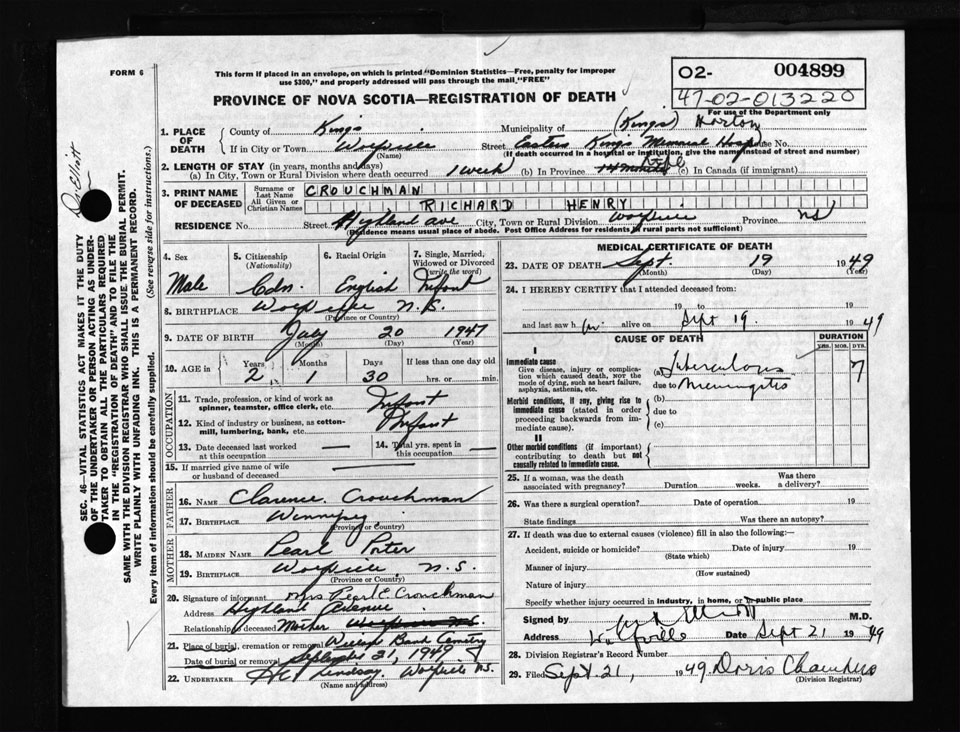 FORM 6
This form if placed in an envelope, on which is printed "Dominion Statistics—Free, penalty for improper
use $300," and properly addressed will pass through the mail "FREE"
PROVINCE OF NOVA SCOTIA—REGISTRATION OF DEATH
02- 004899
47-02-013220
For use of the Department only
1. PLACE OF DEATH { County of Kings Municipality of (Kings) Horton
If in City or Town Wolfville (Name) Street Eastern Kings Memorial Hosp House No.
(If death occurred in a hospital or institution, give the name instead of street and number)
2. LENGTH OF STAY (in years, months and days)
(a) In City, Town or Rural Division where death occurred 1 week (b) In Province Life 14 months (c) In Canada (if immigrant)
3. PRINT NAME OF DECEASED { Surname or Last Name CROUCHMAN
All Given or Christian Names RICHARD HENRY
RESIDENCE No. Street Highland ave City, Town or Rural Division Wolfville Province NS
(Residence means usual place of abode. Post Office Address for residents in rural parts not sufficient)
4. Sex Male
5. Citizenship (Nationality) Cdn.
6. Racial Origin English
7. Single, Married, Widowed or Divorced (write the word) Infant
8. BIRTHPLACE Wolfville N.S.
(Province or Country)
9. DATE OF BIRTH July 20 1947
(Month) (Day) (Year)
10. AGE in { Years 2 Months 1 Days 30 If less than one day old
hrs. or min.
OCCUPATION
11. Trade, profession, or kind of work as spinner, teamster, office clerk, etc. Infant
12. Kind of industry or business, as cotton-mill, lumbering, bank, etc. Infant
13. Date deceased last worked at this occupation —
14. Total yrs. spent in this occupation —
15. If married give name of wife or husband of deceased
FATHER
16. NAME Clarence Crouchman
17. BIRTHPLACE Winnipeg
(Province or Country)
MOTHER
18. MAIDEN NAME Pearl Porter
19. BIRTHPLACE Wolfville, N.S.
(Province or Country)
20. Signature of informant Mrs Pearl E. Crouchman
Address Highland Avenue
Relationship to deceased Mother Wolfville N.S.
21. Place of burial, cremation or removal Willow Bank Cemetry
Date of burial or removal September 21, 1949
22. UNDERTAKER Lindsay, Wolfville N.S.
(Name and address)
MEDICAL CERTIFICATE OF DEATH
23. DATE OF DEATH Sept. 19 1949
(Month) (Day) (Year)
24. I HEREBY CERTIFY that I attended deceased from:
19 to 19
and last saw h im alive on Sept 19. 1949
CAUSE OF DEATH DURATION
YRS. MOS. DYS.
I
Immediate cause
Give disease, injury or complication which caused death, not the mode of dying, such as heart failure, asphyxia, asthenia, etc.
(a) Tuberculous 7
due to Meningitis
Morbid conditions, if any, giving rise to immediate cause (stated in order proceeding backwards from immediate cause).
(b)
due to
(c)
II
Other morbid conditions (if important) contributing to death but not causally related to immediate cause.
25. If a woman, was the death associated with pregnancy? Duration weeks. Was there a delivery?
26. Was there a surgical operation? Date of operation 19
State findings Was there an autopsy?
27. If death was due to external causes (violence) fill in also the following:—
Accident, suicide or homicide? Date of injury 19
(State which)
Manner of injury
(How sustained)
Nature of injury
Specify whether injury occurred in industry, in home, or in public place
Signed by Elliott M.D.
Address Wolfville Date Sept 21 1949
28. Division Registrar's Record Number
29. Filed Sept. 21, 1949. Doris Chambers
(Division Registrar)
Dr. Elliott
SEC. 46—VITAL STATISTICS ACT MAKES IT THE DUTY
OF THE UNDERTAKER OR PERSON ACTING AS UNDER-
TAKER TO OBTAIN ALL THE PARTICULARS REQUIRED
IN THE "REGISTRATION OF DEATH" AND TO FILE THE
SAME WITH THE DIVISION REGISTRAR WHO SHALL ISSUE THE BURIAL PERMIT.
WRITE PLAINLY WITH UNFADING INK. THIS IS A PERMANENT RECORD.
Every item of information should be carefully supplied. (See reverse side for instructions.)